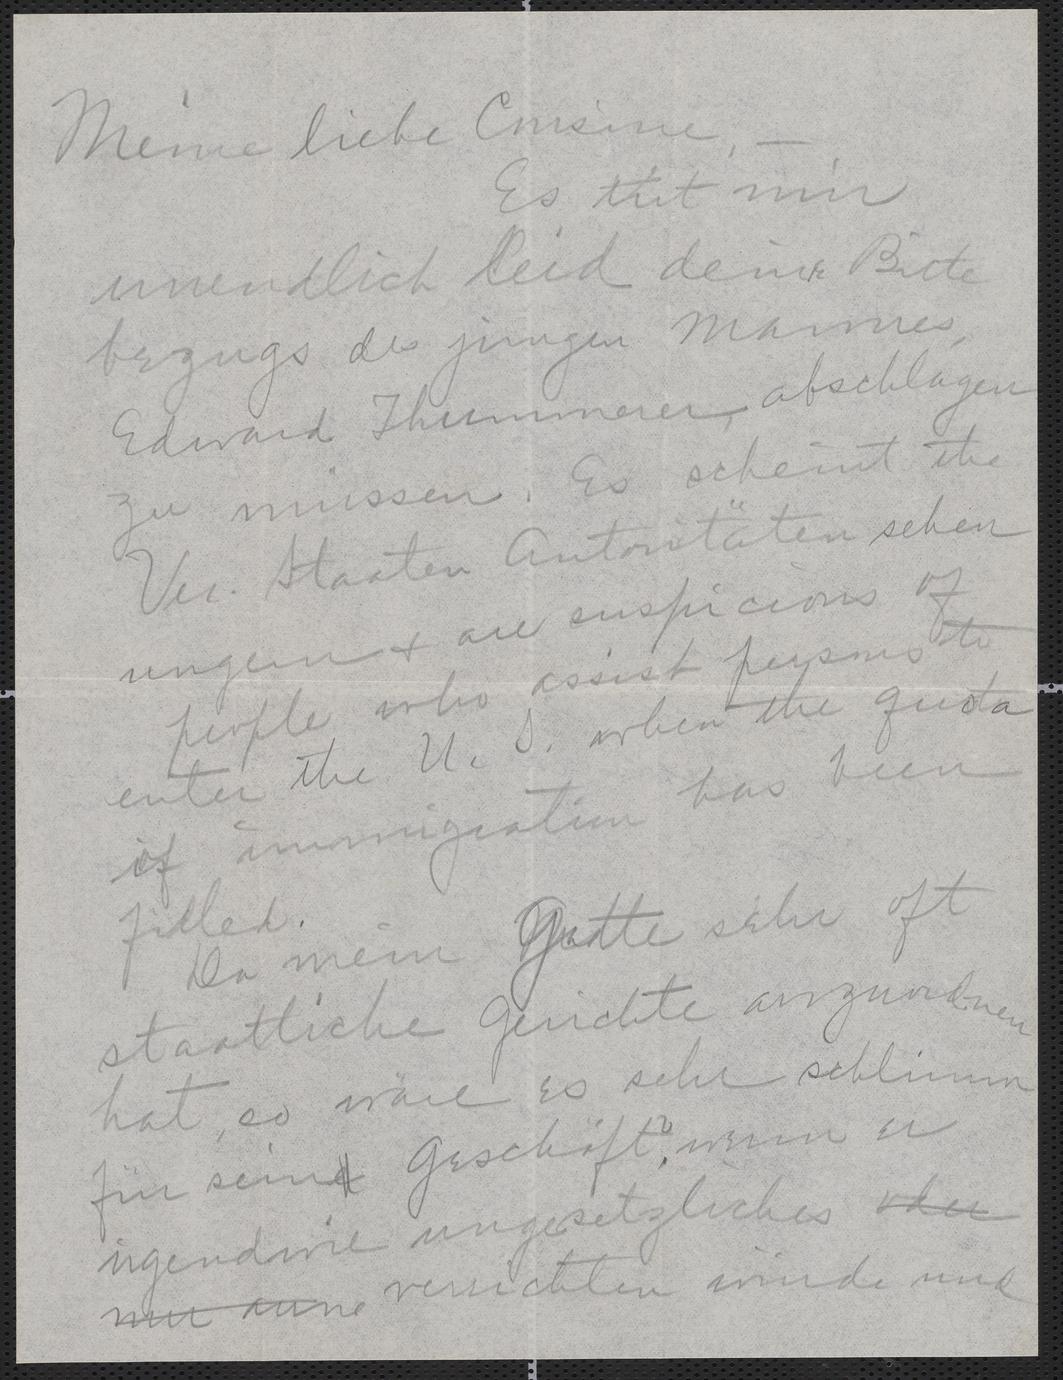 Meine liebe Cousine, —
Es thut mir
unendlich leid deine Bitte
bezugs des jungen Mannes,
Edward Thummerer, abschlagen
zu müssen. Es scheint the
Ver. Staaten Autoritäten sehen
ungern & are suspicious of
people who assist persons to
enter the U. S. when the quota
of immigration has been
filled.
Da mein Gatte sehr oft
staatliche Gerichte anzuordnen
hat, so wäre es sehr schlimm
für sein Geschäft, wenn er
irgendwie ungesetzliches oder
nur verrichten würde und